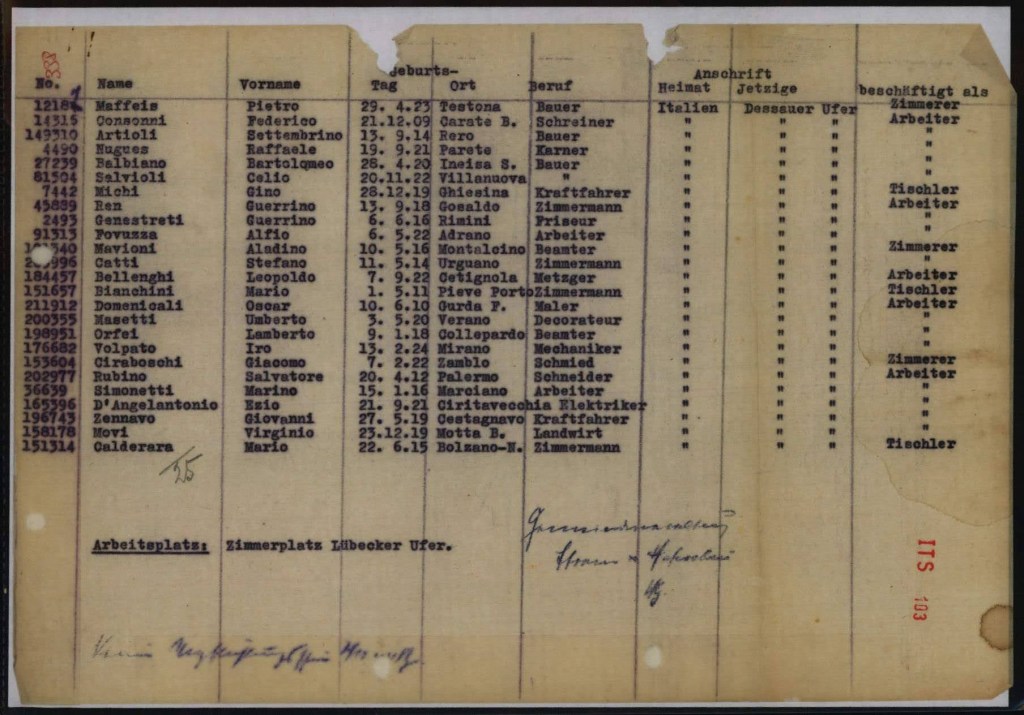 Geburts- Anschrift
No. Name Vorname Tag Ort Beruf Heimat Jetzige beschäftigt als
Maffeis Pietro 29. 4.23 Testona Bauer Italien Dessauer Ufer Zimmerer
14315 Consonni Federico 21.12.09 Carate B. Schreiner " " " Arbeiter
149310 Artioli Settembrino 13. 9.14 Rero Bauer " " " "
4490 Nugues Raffaele 19. 9.21 Parete Karner " " " "
27239 Balbiano Bartolqmeo 28. 4.20 Ineisa S. Bauer " " " "
81504 Salvioli Celio 20.11.22 Villanuova " " " " "
7442 Michi Gino 28.12.19 Ghiesina Kraftfahrer " " " Tischler
45889 Ren Guerrino 13. 9.18 Gosaldo Zimmermann " " " Arbeiter
2493 Genestreti Guerrino 6. 6.16 Rimini Friseur " " " "
91313 Povuzza Alfio 6. 5.22 Adrano Arbeiter " " " "
Mavioni Aladino 10. 5.16 Montalcino Beamter " " " Zimmerer
Catti Stefano 11. 5.14 Urguano Zimmermann " " " "
184457 Bellenghi Leopoldo 7. 9.22 Cetignola Metzger " " " Arbeiter
151657 Bianchini Mario 1. 5.11 Pieve Porto Zimmermann " " " Tischler
211912 Domenicali Oscar 10. 6.10 Gurda F. Maler " " " Arbeiter
200355 Masetti Umberto 3. 5.20 Verano Decorateur " " " "
198951 Orfei Lamberto 9. 1.18 Collepardo Beamter " " " "
176682 Volpato Iro 13. 2.24 Mirano Mechaniker " " " "
153604 Ciraboschi Giacomo 7. 2.22 Zamblo Schmied " " " Zimmerer
202977 Rubino Salvatore 20. 4.12 Palermo Schneider " " " Arbeiter
36639 Simonetti Marino 15. 1.16 Marciano Arbeiter " " " "
165396 D'Angelantonio Ezio 21. 9.21 Ciritavecchia Elektriker " " " "
196743 Zennavo Giovanni 27. 5.19 Cestagnavo Kraftfahrer " " " "
158178 Movi Virginio 23.12.19 Motta B. Landwirt " " " "
151314 Calderara Mario 22. 6.15 Bolzano-N. Zimmermann " " " Tischler
25
Arbeitsplatz: Zimmerplatz Lübecker Ufer.
ITS 103